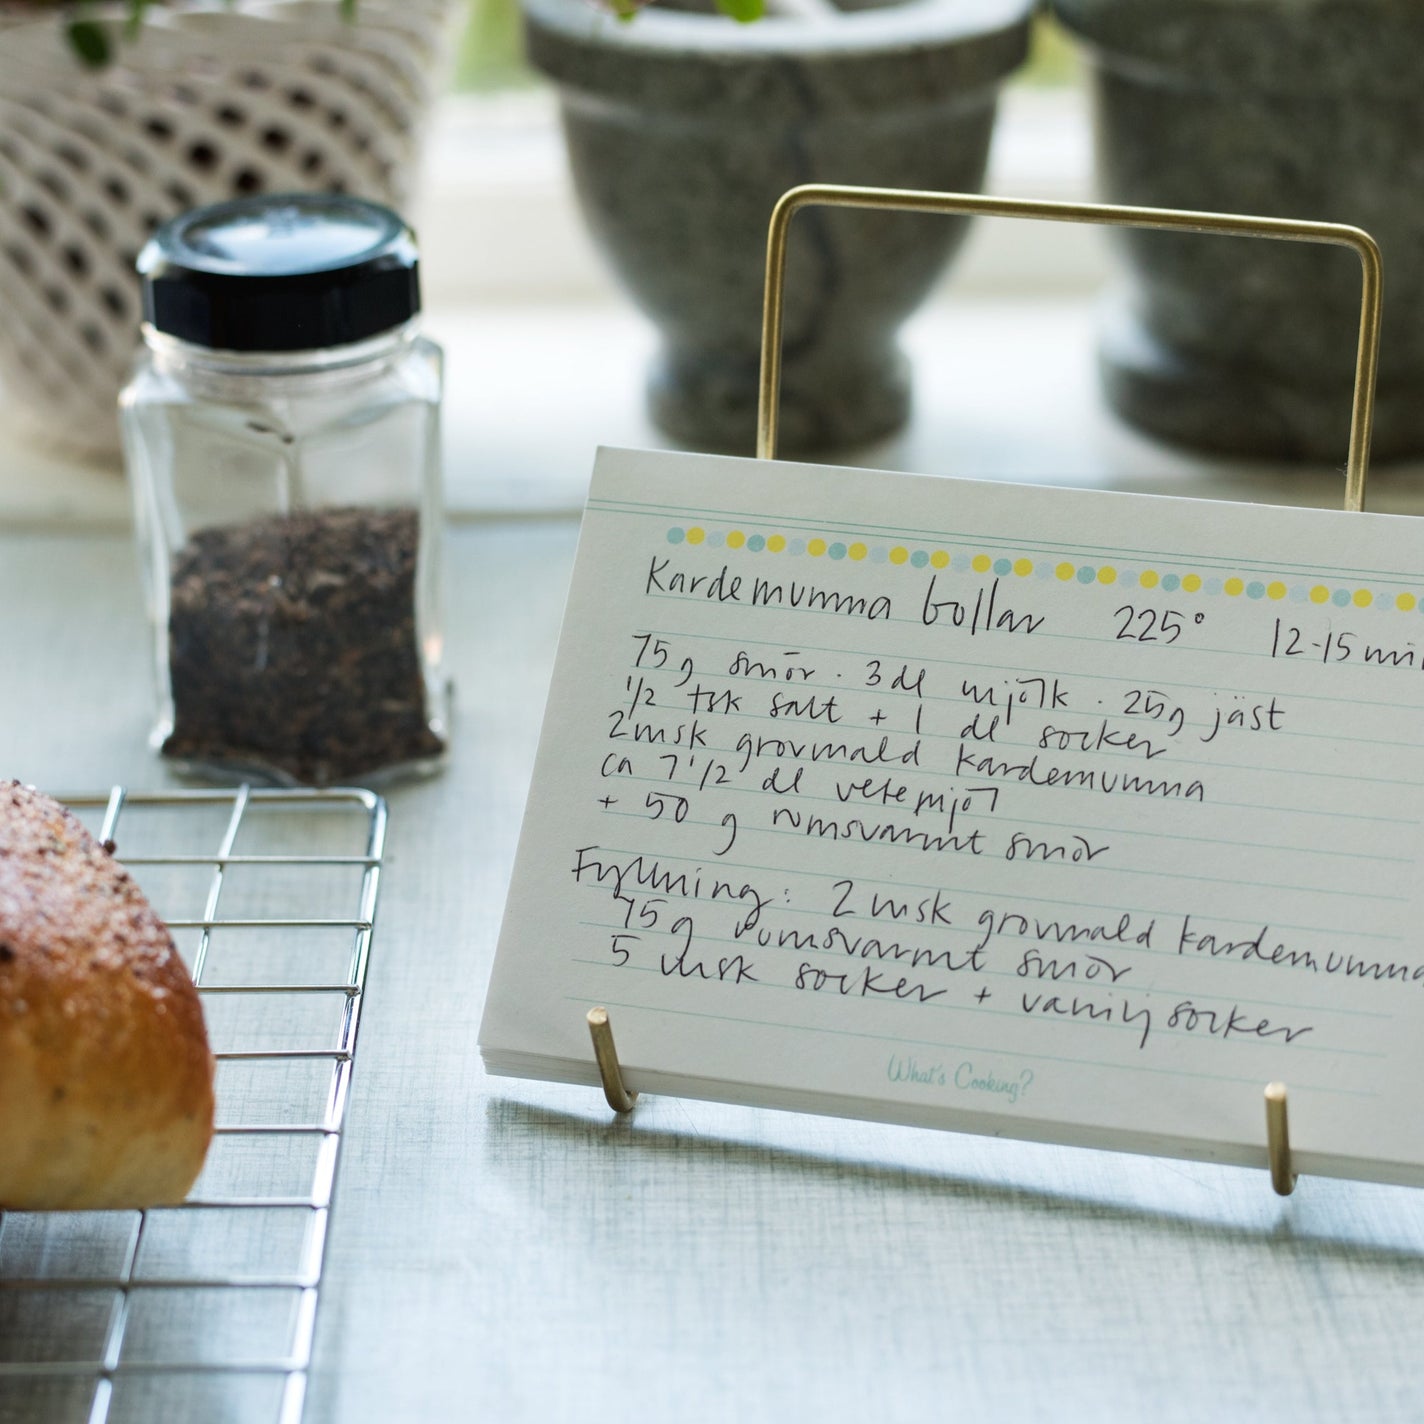 Kardemumma bollar 225° 12-15 min
75g smör · 3 dl mjölk · 25g jäst
1/2 tsk salt + 1 dl socker
2 msk grovmald kardemumma
ca 7 1/2 dl vetemjöl
+ 50 g rumsvarmt smör
Fyllning: 2 msk grovmald kardemumma
75g rumsvarmt smör
5 msk socker + vaniljsocker
What's Cooking?